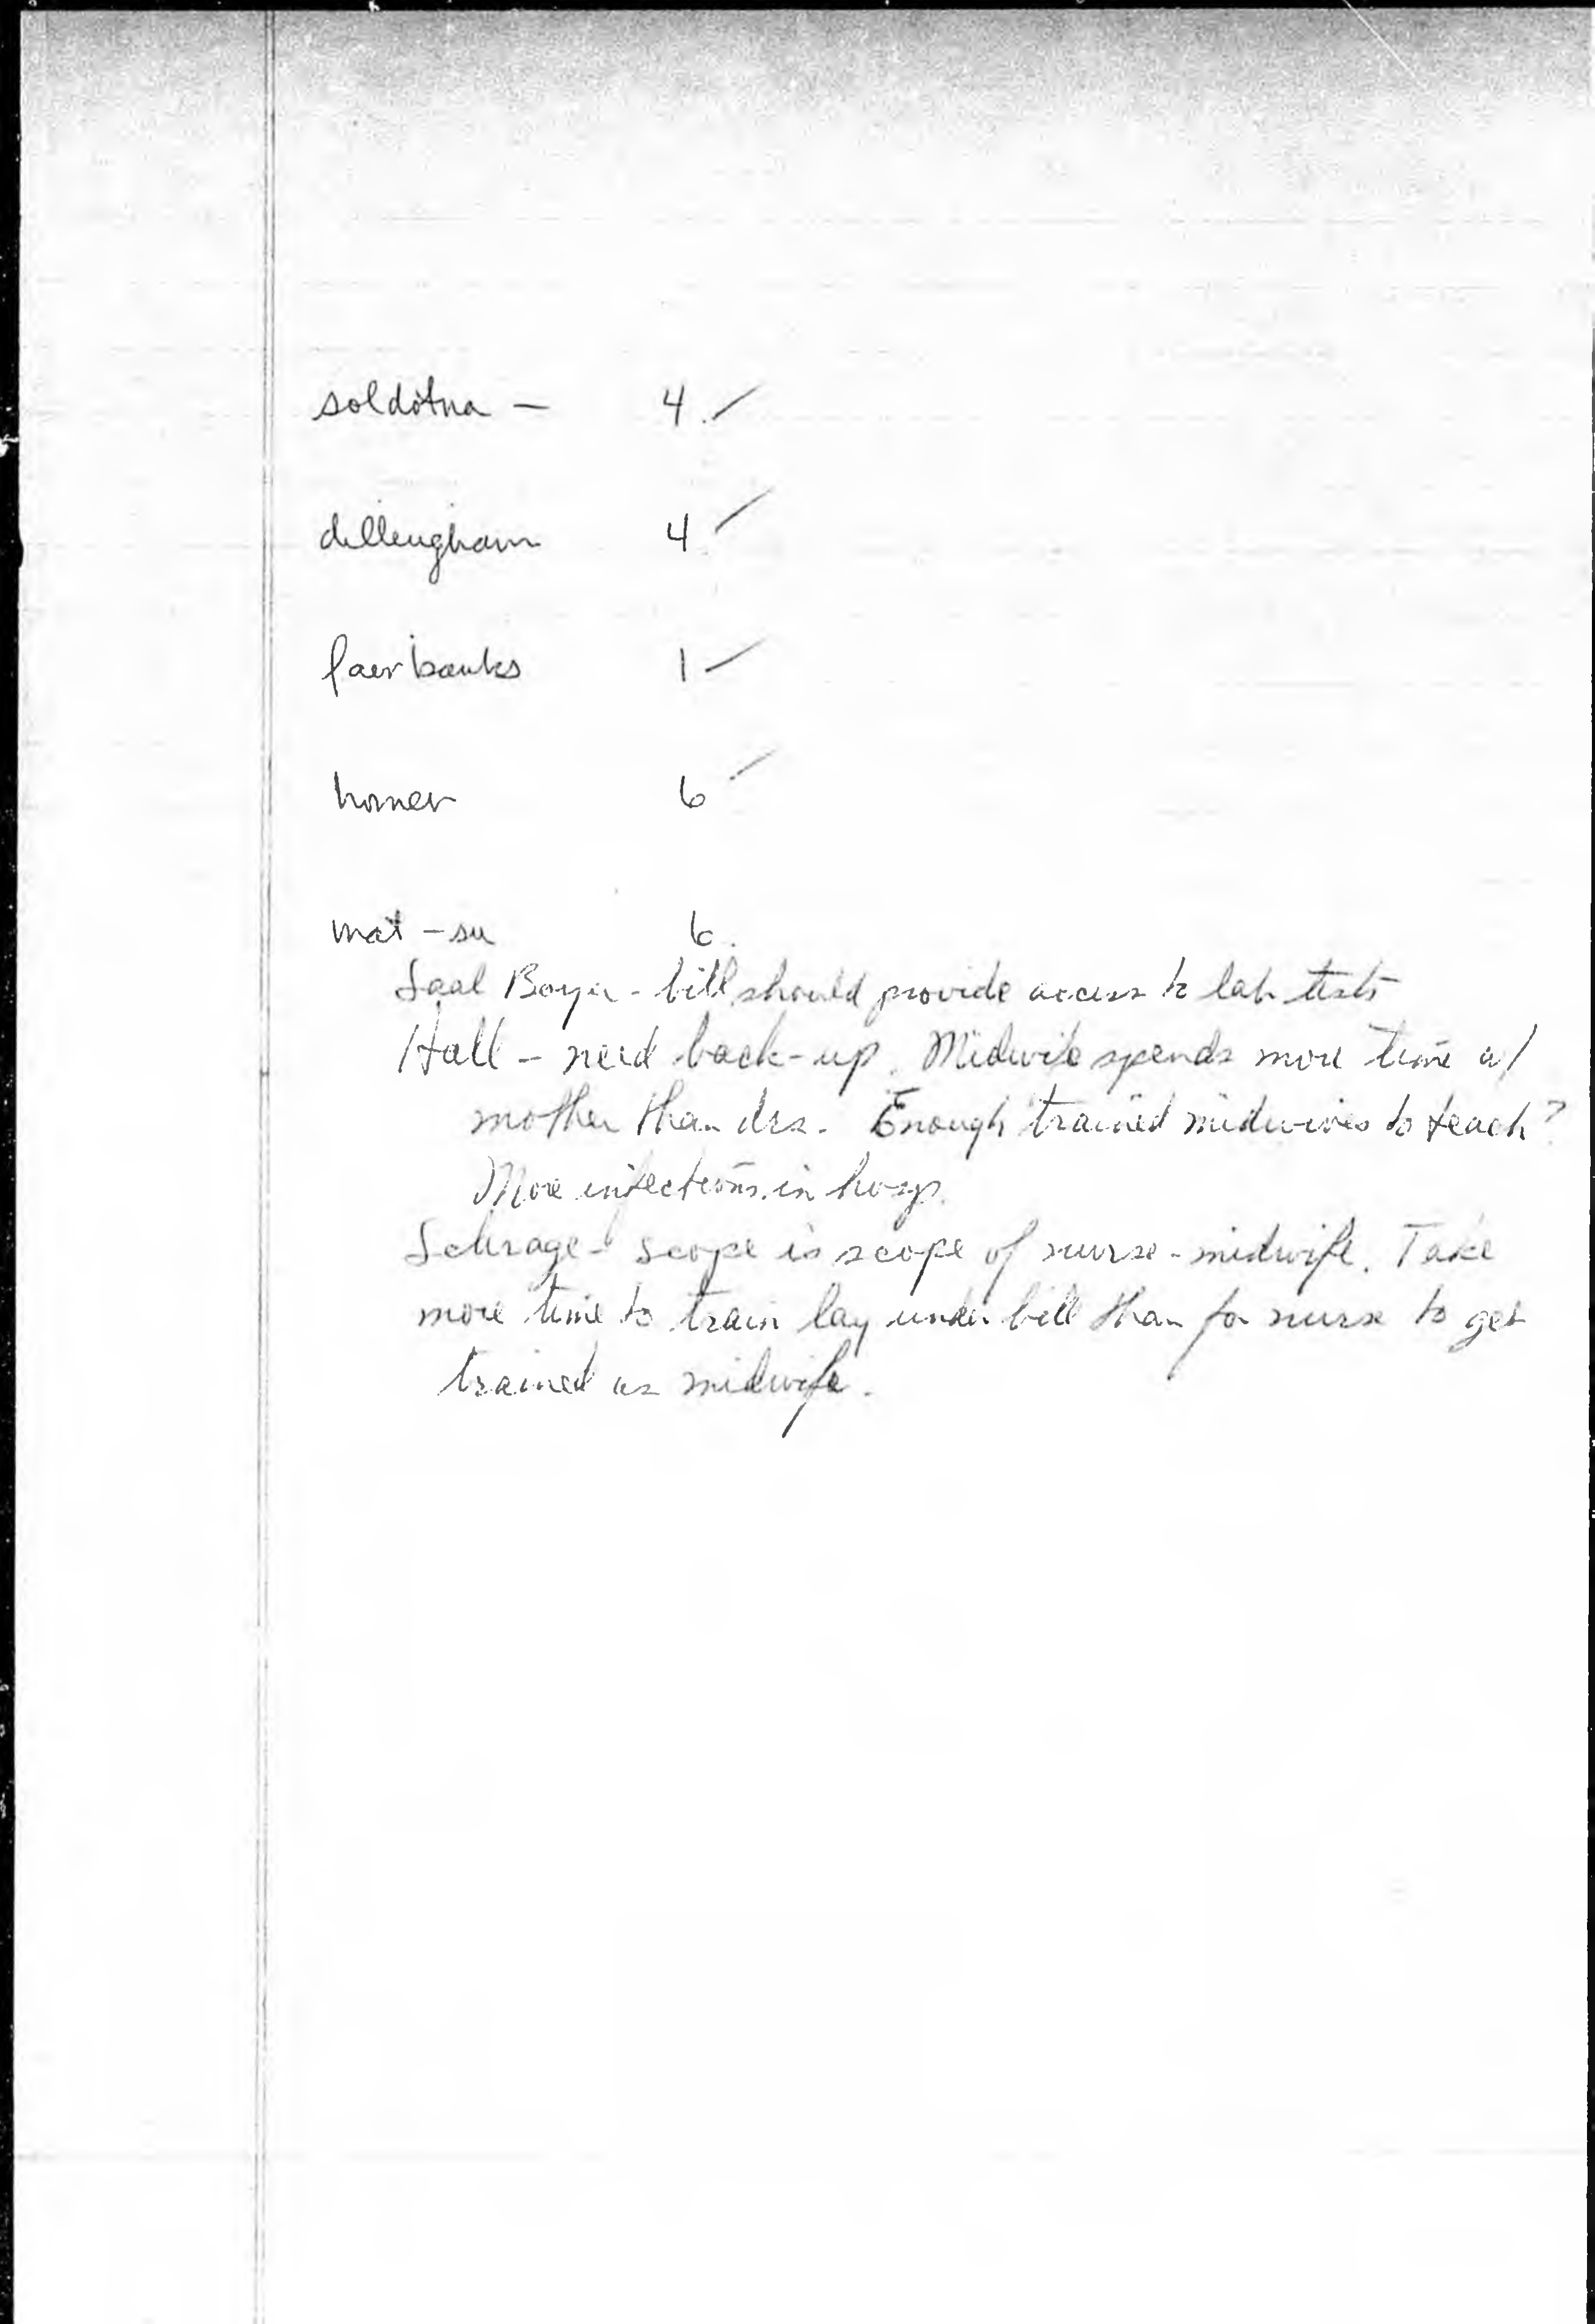 soldotna — 4 ✓
dillingham 4 ✓
fairbanks 1 ✓
homer 6 ✓
mat-su 6
Boyer - bill should provide access to lab tests
Hall - need back-up. Midwife spends more time w/
mother than drs. Enough trained midwives to teach?
More infections in hosp.
Schrage - scope is scope of nurse-midwife. Take
more time to train lay under bill than for nurse to get
trained as midwife.